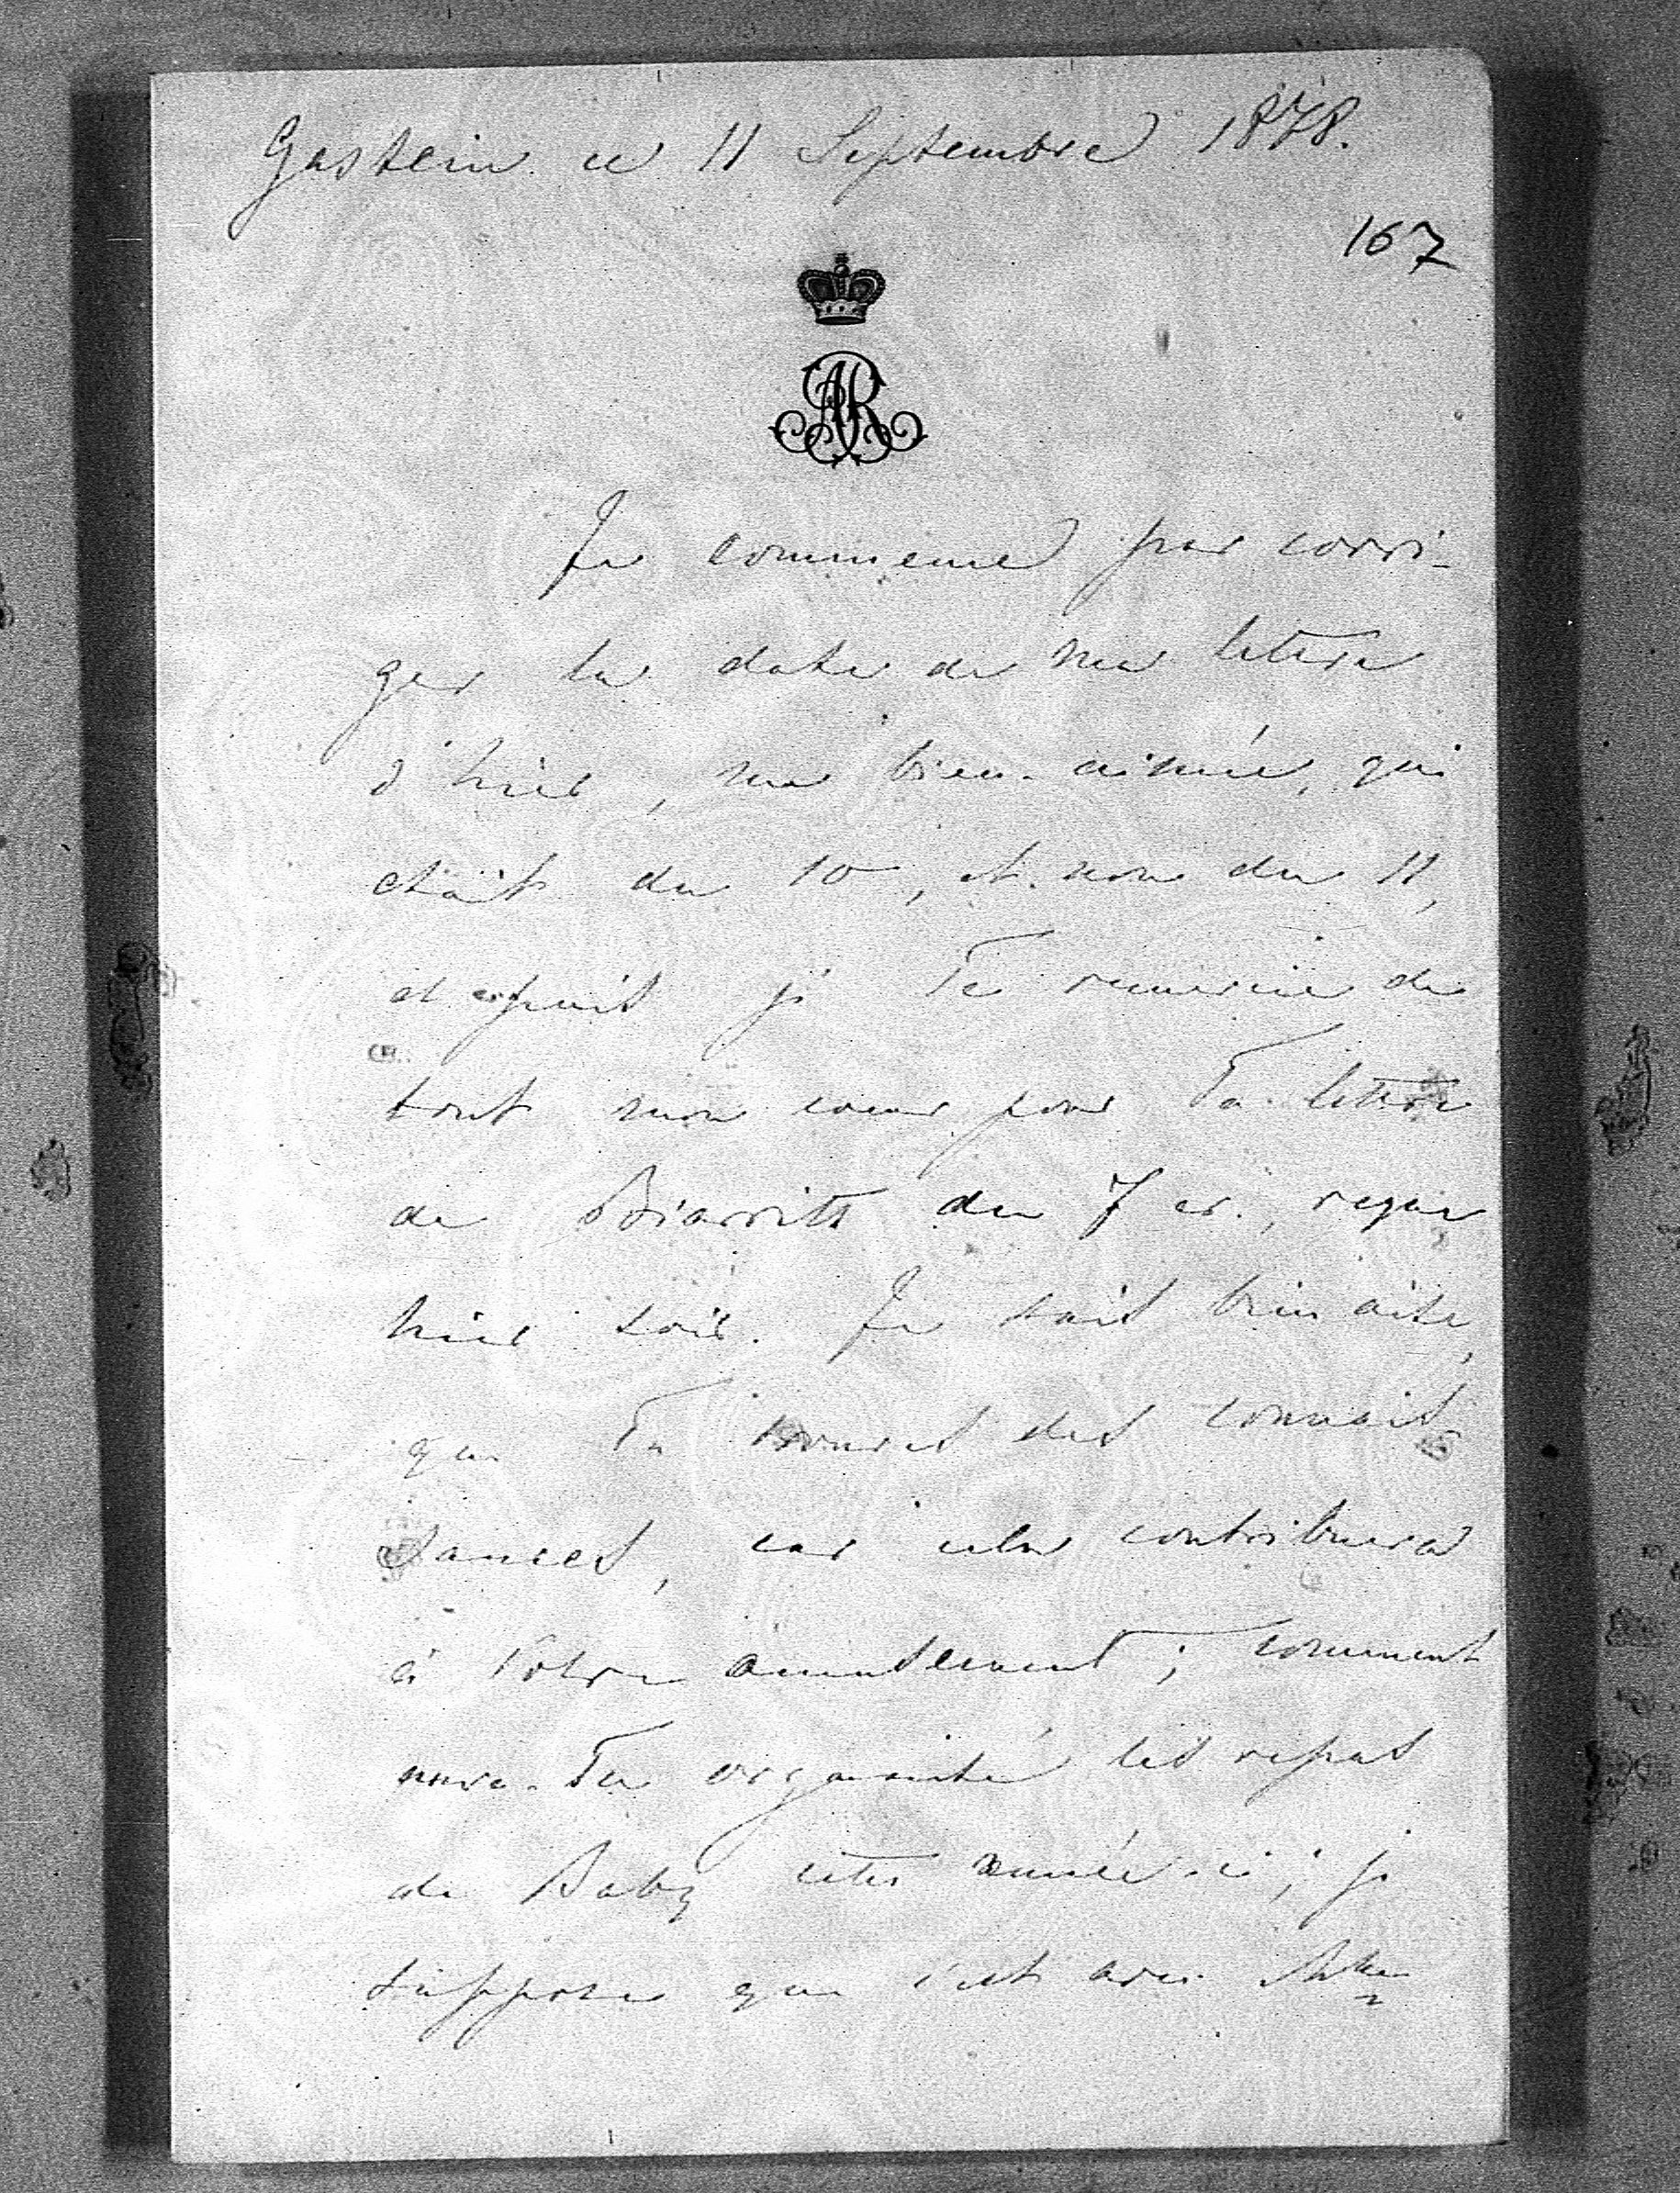 Gastein ce 11 Septembre 1878.
167
AR
Je commence par corri-
ger la date de ma lettre
d'hier, ma bien-aimée, qui
était du 10, et non du 11,
et puis je Te remercie de
tout mon coeur pour Ta lettre
de Biarritz du 7 cr., reçue
hier soir. Je suis bien aise,
que Tu trouves des connais-
sances, car cela contribuera
à Votre amusement; comment
avez-Tu organisé les repas
de Baby cette année-ci; je
suppose que c'est avec